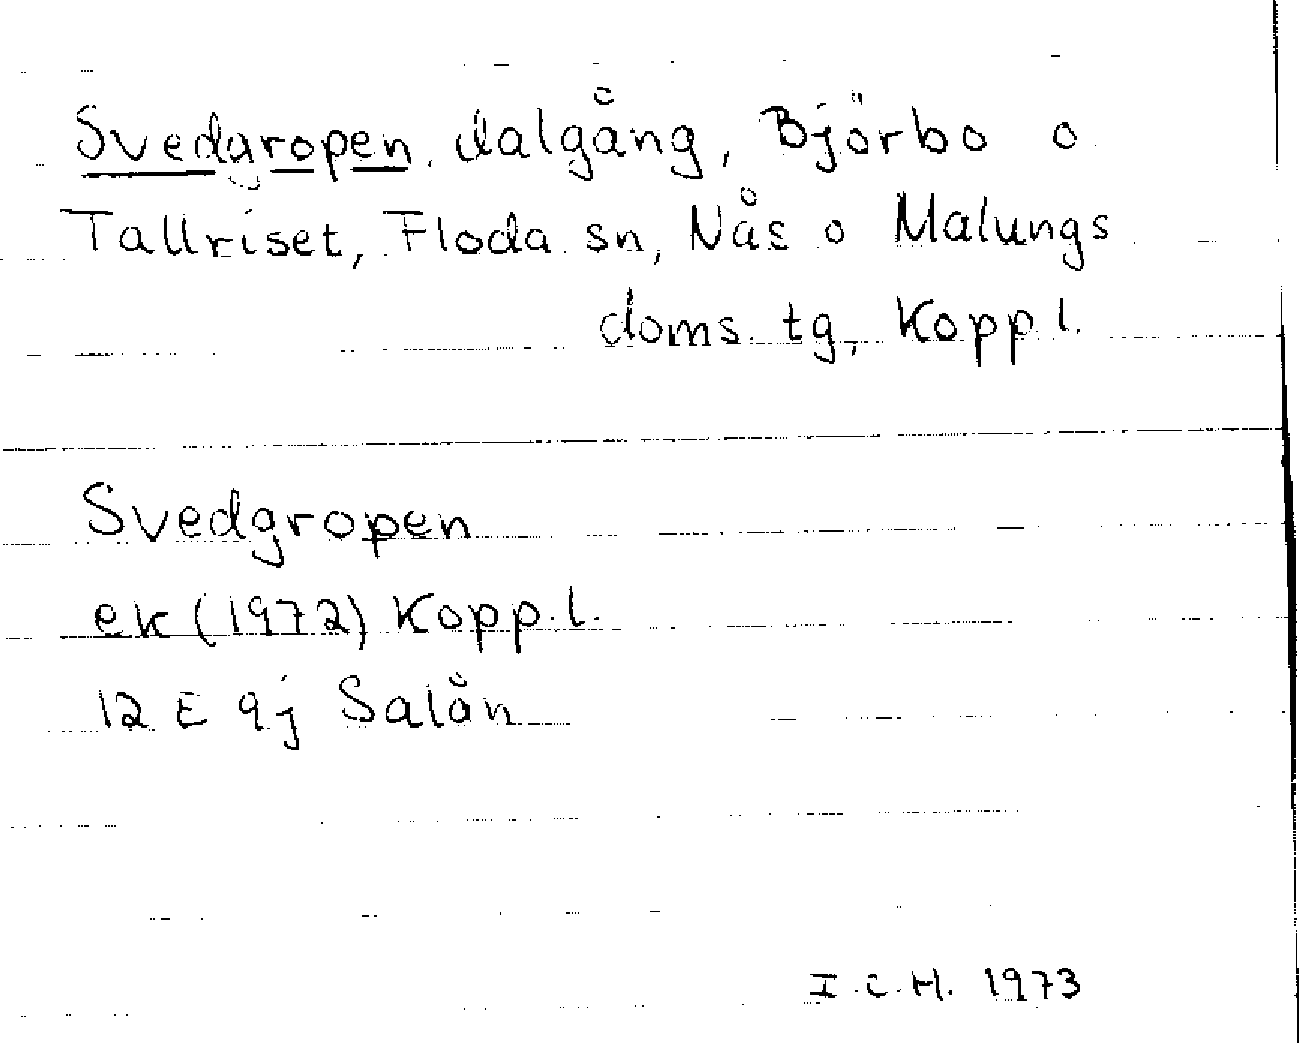 Svedgropen, dalgång, Björbo o
Tallriset, Floda sn, Nås o Malungs
doms. tg, Kopp.l.
Svedgropen
ek (1972) Kopp.l.
12 E 9j Salån
I.C.H. 1973